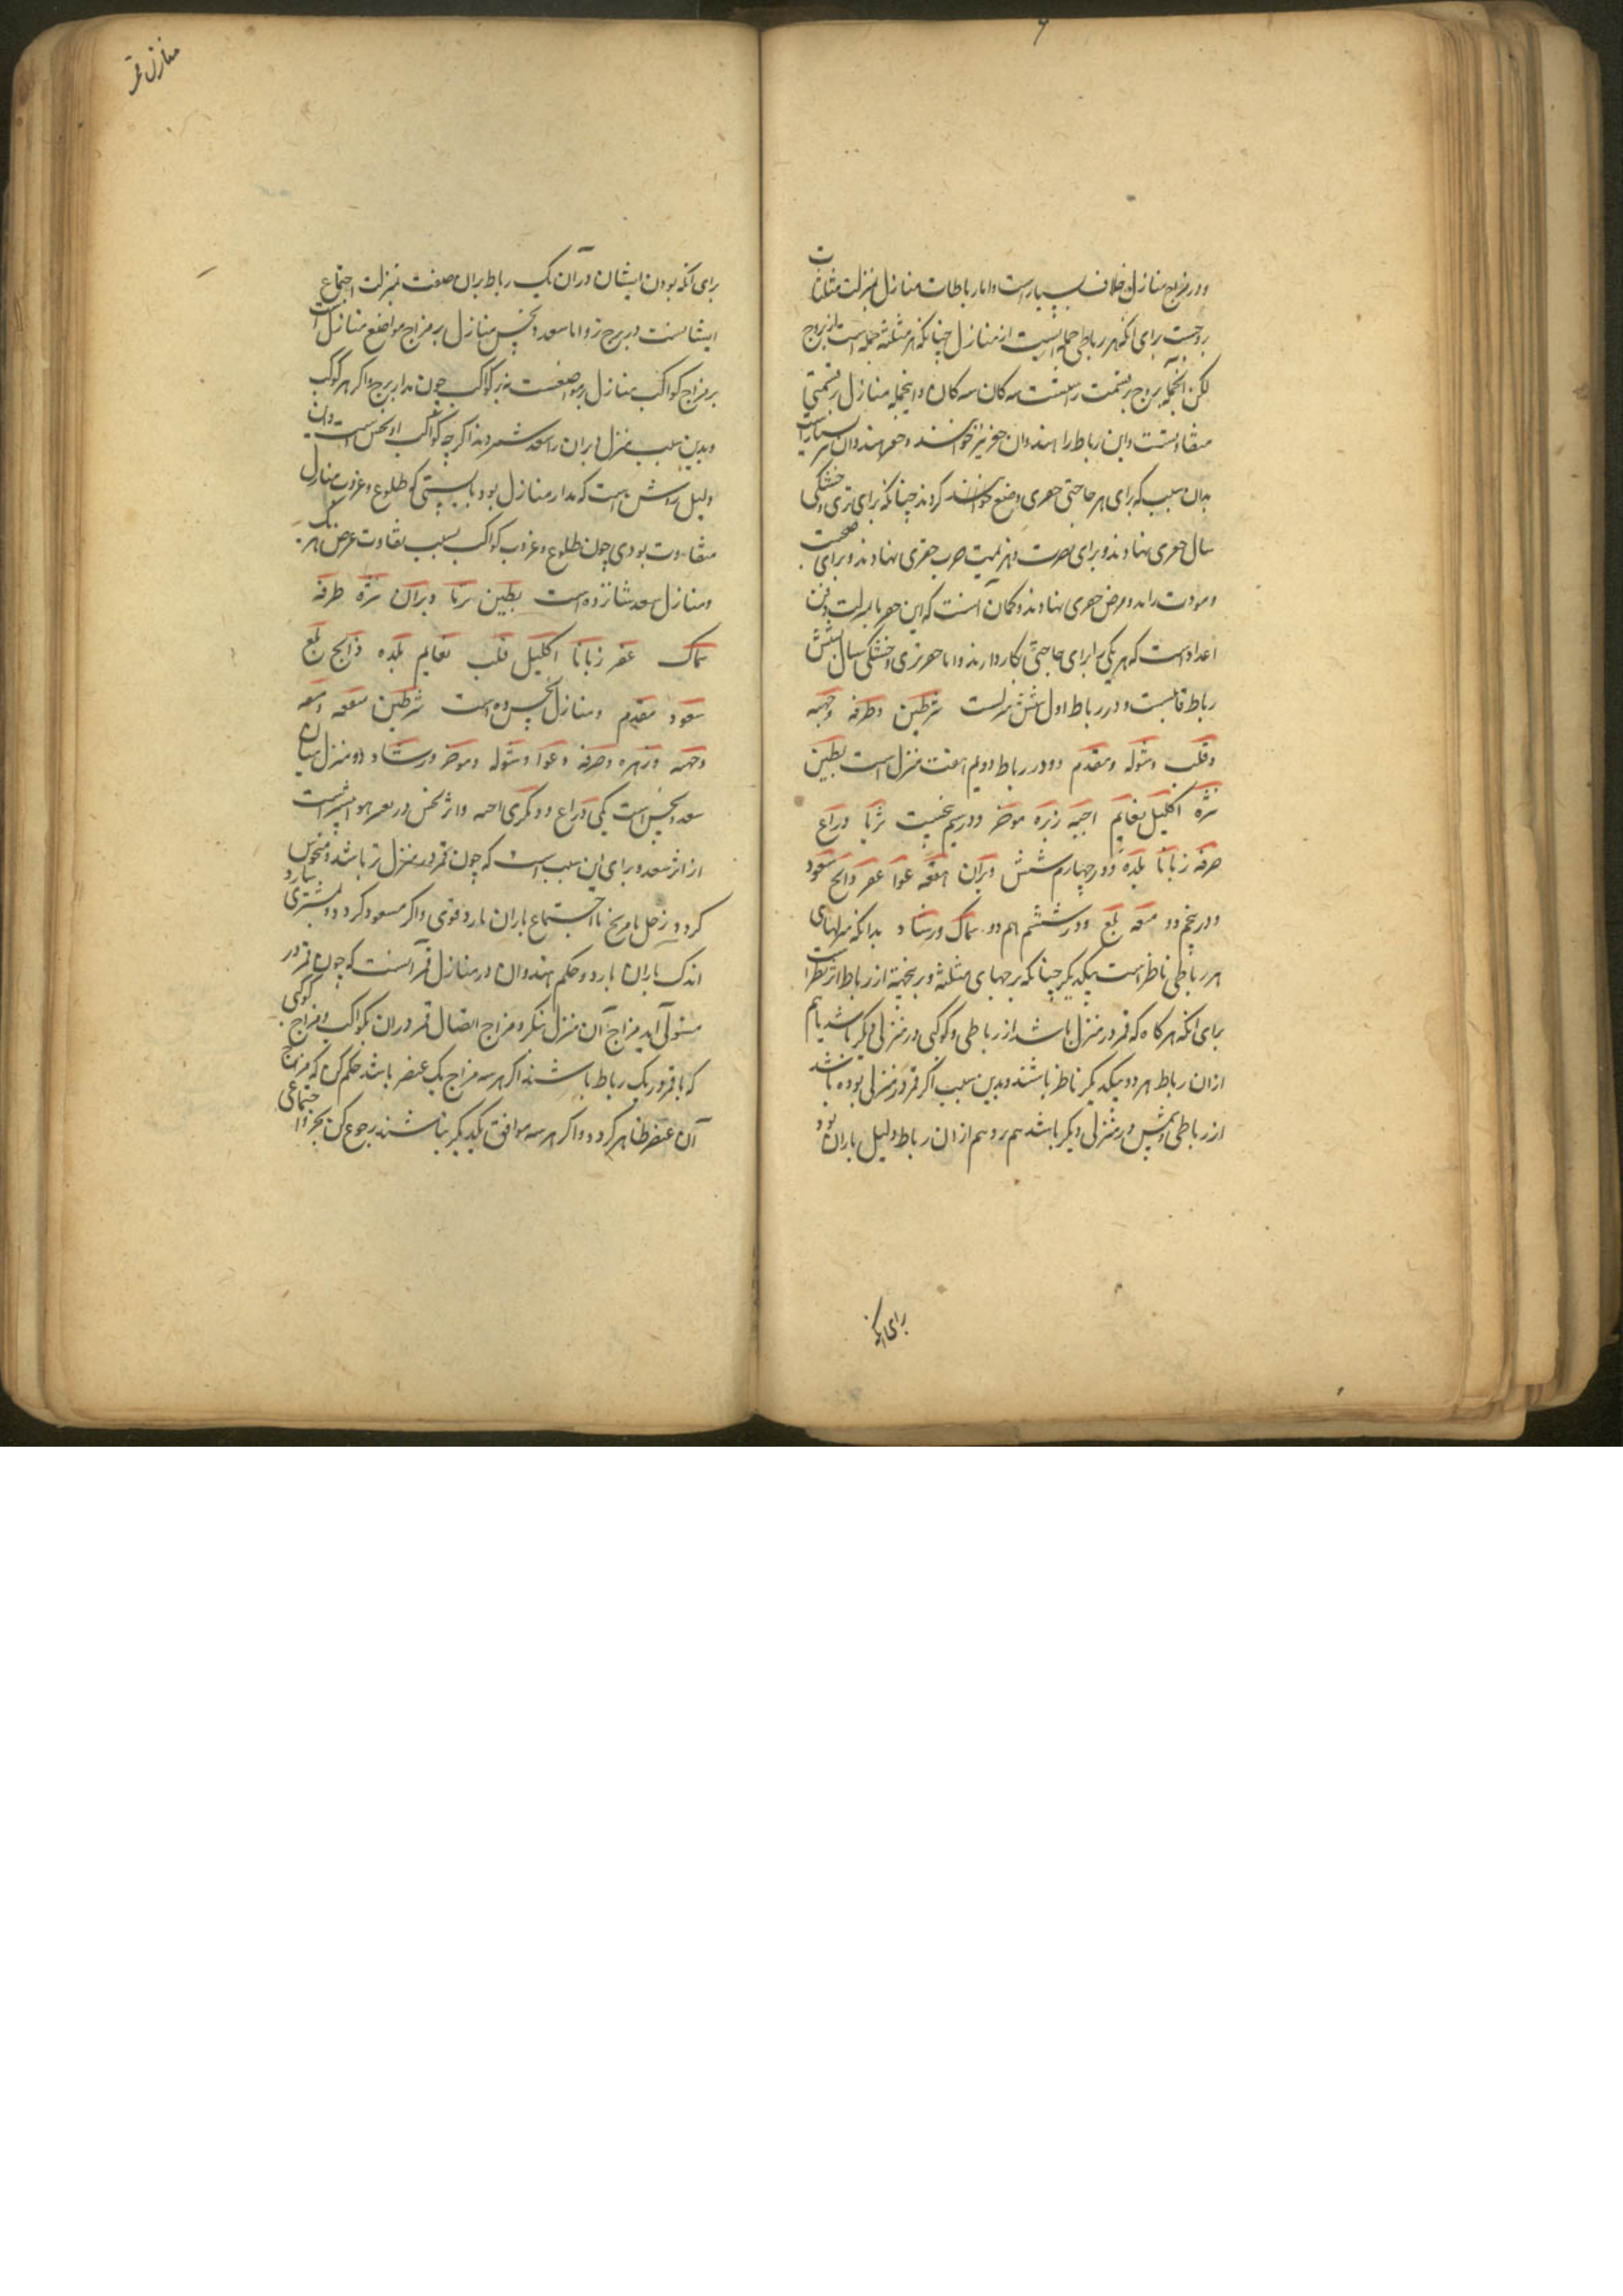 ودر مزاج منازل خلاف بسیار است واما رباطات منازل بمنزلت مثلثات
بروجست برای انکه هر رباطی جمله ایست از منازل چنانکه هر مثلثه جمله است از بروج
لکن بروج بر قسمت راستست سه کان سه کان واینجمله منازل بر قسمتی
متفاوتست واین رباط را هندوان خوانند وهندوان
بدان سبب که برای هر حاجتی وضع کردند چنانکه برای تری وخشکی
سال نهادند وبرای نصرت وهزیمت حرب نهادند وبرای صحت
ومرض نهادند وکمان آنست که این
اعداد است که هر یکی را برای حاجتی بکار دارند واما تری وخشکی سال شش
رباط ودر رباط اول شش منزلست شرطین وطرفه وجبهه
وقلب وشوله ومقدم ودر رباط دویم هفت منزل است بطین
نثره اکلیل نعایم اخبیه زبره موخر ودر سیم ثریا ذراع
صرفه زبانا بلده ودر چهارم شش دبران هقعه عوا غفر ذابح سعود
ودر پنجم دو هنعه بلع ودر ششم هم دو سماک ورشاد بدانکه منزلهای
هر رباطی ناظر است بیکدیگر چنانکه برجهای مثلثه
برای انکه هرکاه که قمر در منزلی باشد از رباطی وکوکبی در منزلی دیگر باشد هم
ازان رباط هر دو بیکدیگر ناظر باشند وبدین سبب اکر قمر در منزلی بوده باشد
از رباطی وشمس در منزلی دیگر باشد هم ازان رباط دلیل باران بود
برای انکه
منازل قمر
برای آنکه بودن ایشان در آن یک رباط بران صفت بمنزلت اجتماع
ایشانست در برج تر واما سعد ونحس منازل بر مزاج مواضع منازل است
بر مزاج کواکب منازل نه بر کواکب چون مدار بروج واکر هر کوکب
وبدین سبب منزل دبران را سعد شمردند اکرچه کواکب او نحس است
دلیل روشن است که مدار منازل بودبایستی که طلوع وغروب منازل
متفاوت بودی چون طلوع وغروب کواکب بسبب تفاوت عرض هر یک
ومنازل سعد شانزده است بطین ثریا دبران نثره طرفه
سماک غفر زبانا اکلیل قلب نعایم بلده ذابح بلع
سعود مقدم ومنازل نحس ده است شرطین هقعه هنعه
وجبهه وزبره وصرفه وعوا وشوله وموخر ورشاد ودو منزل میان
سعد ونحس است یکی ذراع ودیگری اخبیه واثر نحس در بیشتر است
از اثر سعد وبرای این سبب است که چون قمر در منزل تر باشد ومنحوس
کردد زحل یا مریخ با اجتماع باران بارد قوی واکر مسعود کردد مشتری
اندک باران بارد وحکم هندوان در منازل قمر آنست که چون قمر در
منزلی آید مزاج آن منزل بنکر ومزاج اتصال قمر دران بکواکب ومزاج کوکبی
که با قمر در یک رباط باشند اکر هر سه مزاج یک عنصر باشد حکم کن که مزاج
آن عنصر ظاهر کردد واکر هر سه موافق یکدیگر نباشند رجوع کن